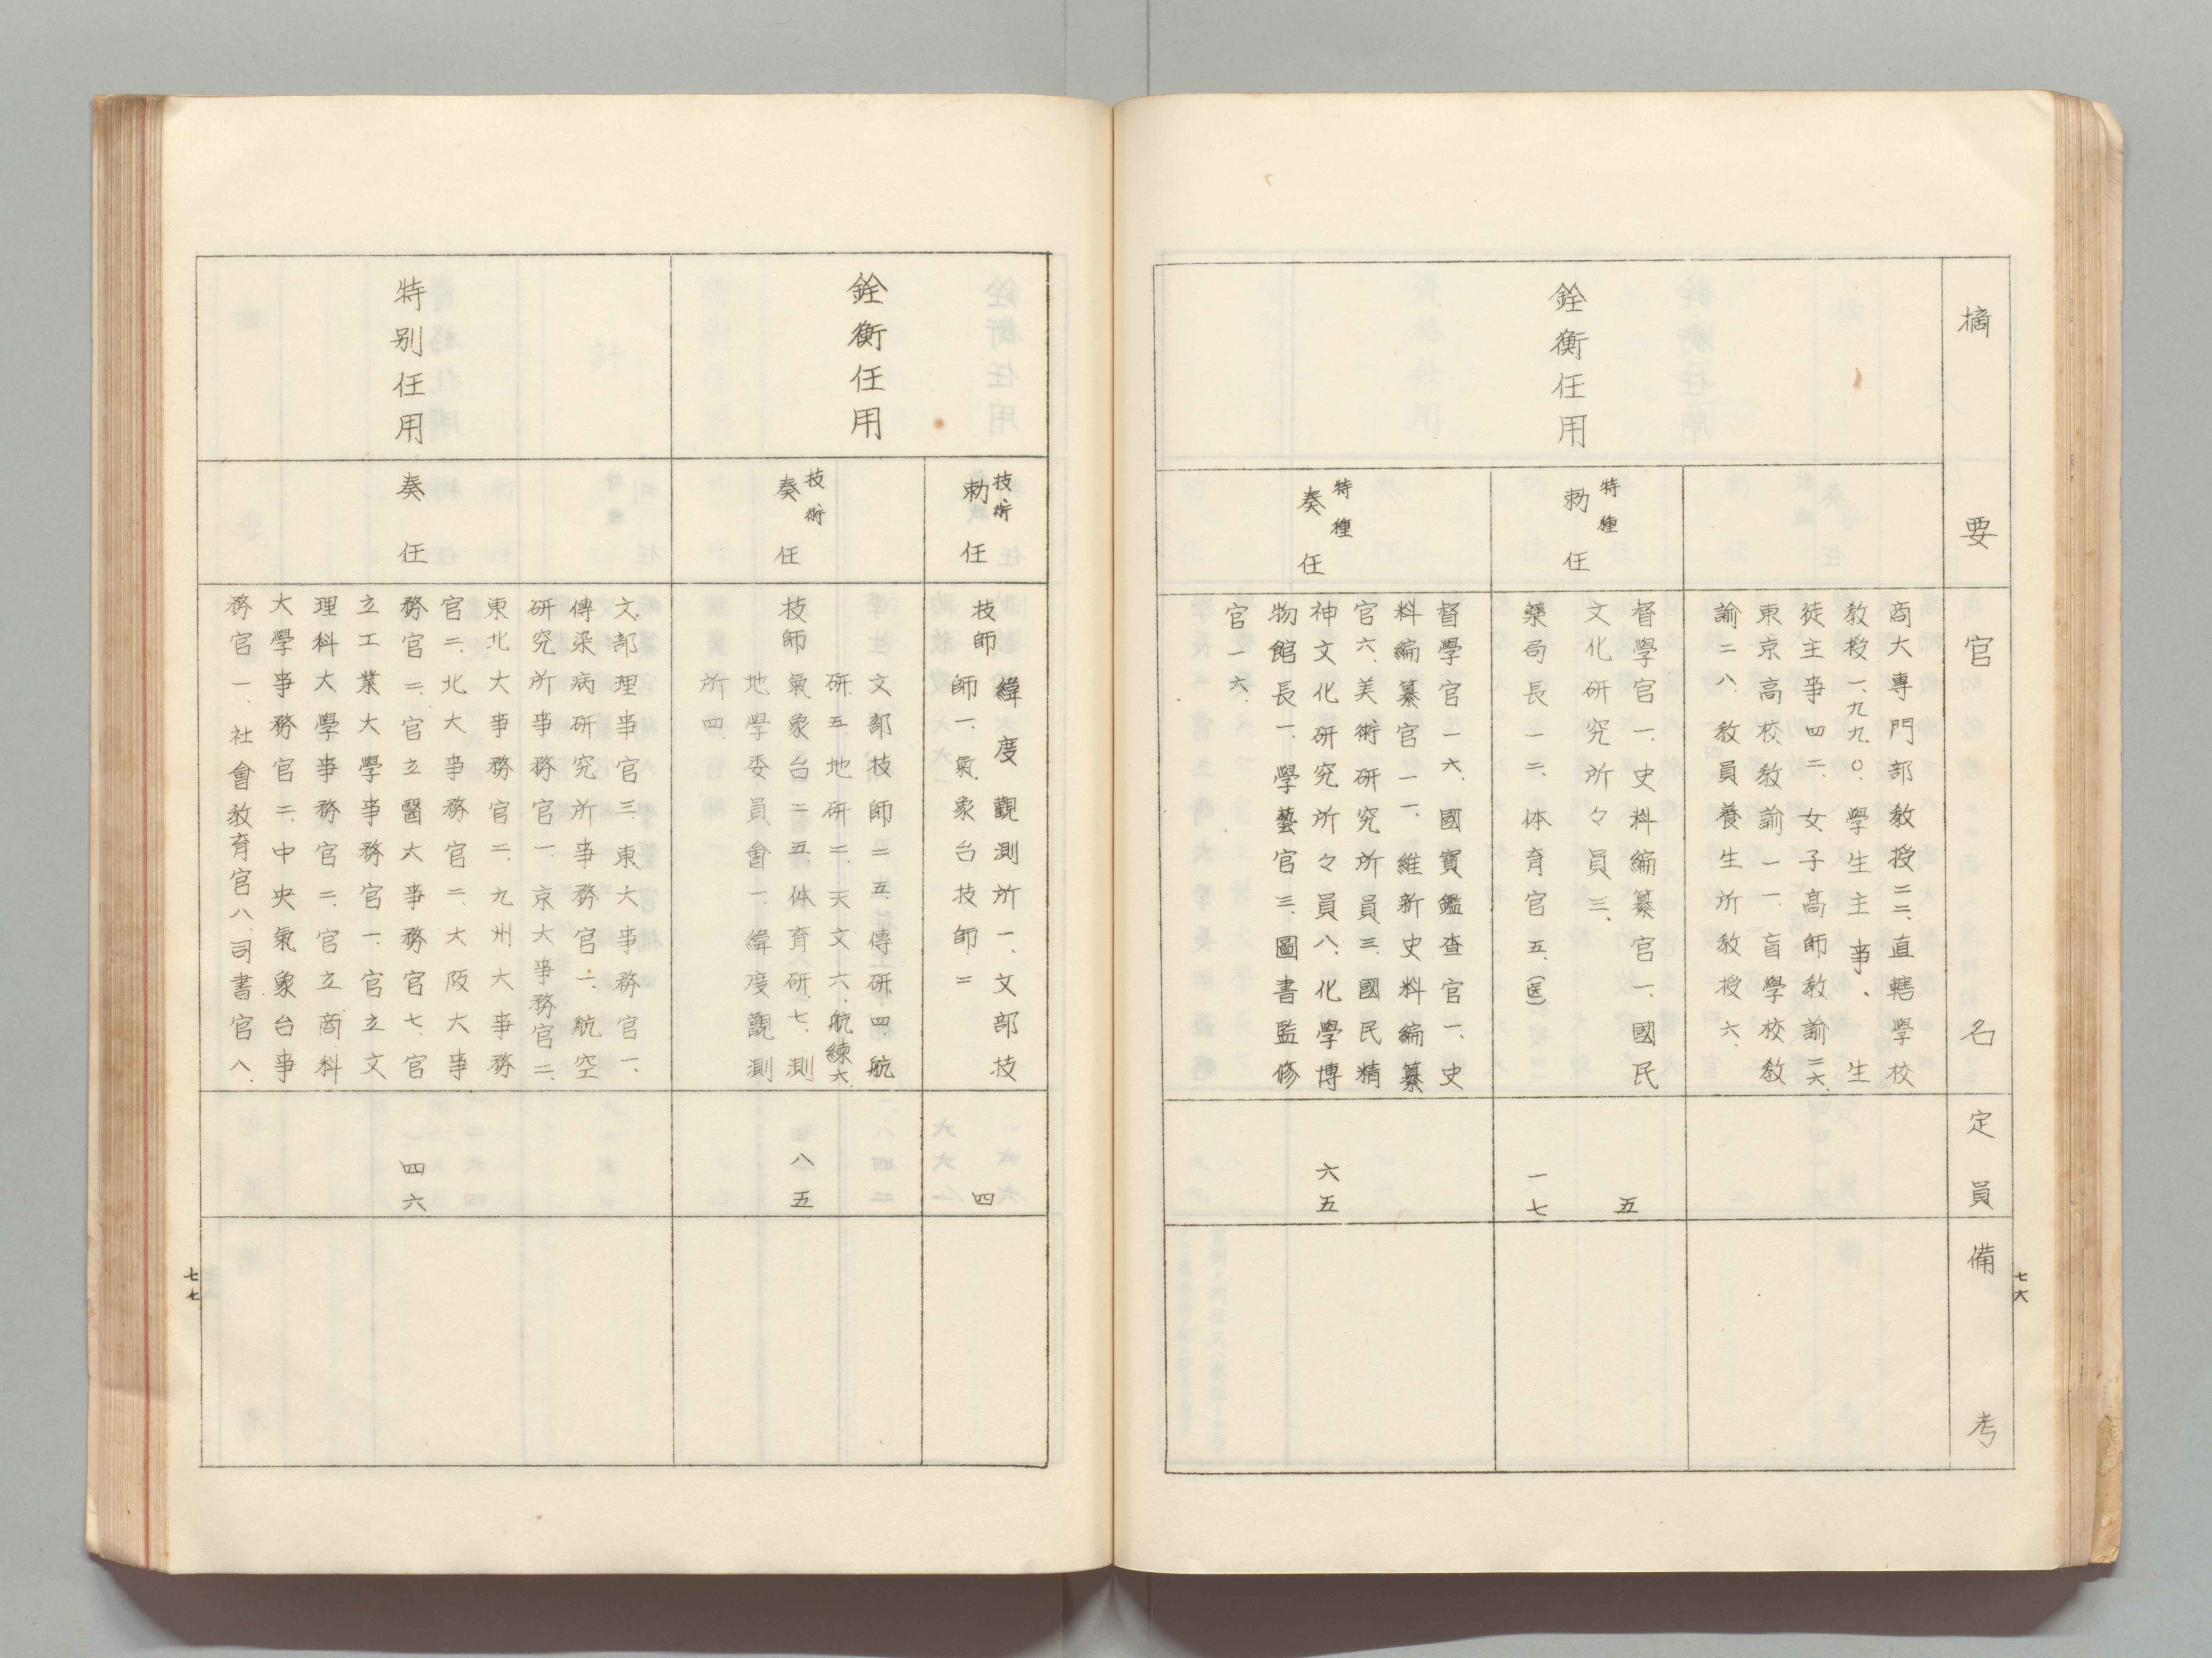 摘要
官名
定員
備考
銓衡任用
商大専門部教授二二、直轄學校
教授一、九九〇、學生主事、生
徒主事四二、女子高師教諭二六、
東京高校教諭一一、盲學校教
諭二八、教員養生所教授六、
特種
勅任
督學官一、史料編纂官一、國民
文化研究所々員三、
五
藥局長一二、体育官五、(医)
一七
特種
奏任
督學官一六、國寶鑑査官一、史
料編纂官一一、維新史料編纂
官六、美術研究所員三、國民精
神文化研究所々員八、化學博
物館長一、學藝官三、圖書監修
官一六、
六五
七六
銓衡任用
技術
勅任
技師
緯度觀測所一、文部技
師一、氣象台技師二
四
技術
奏任
技師
文部技師二五、傳研四、航
研五、地研二、天文六、航練六、
氣象台二五、体育研七、測
地學委員會一、緯度觀測
所四、
八五
特別任用
奏任
文部理事官三、東大事務官一、
傳染病研究所事務官一、航空
研究所事務官一、京大事務官二、
東北大事務官二、九州大事務
官二、北大事務官二、大阪大事
務官二、官立醫大事務官七、官
立工業大學事務官一、官立文
理科大學事務官二、官立商科
大學事務官二、中央氣象台事
務官一、社會教育官八、司書官八、
四六
七七